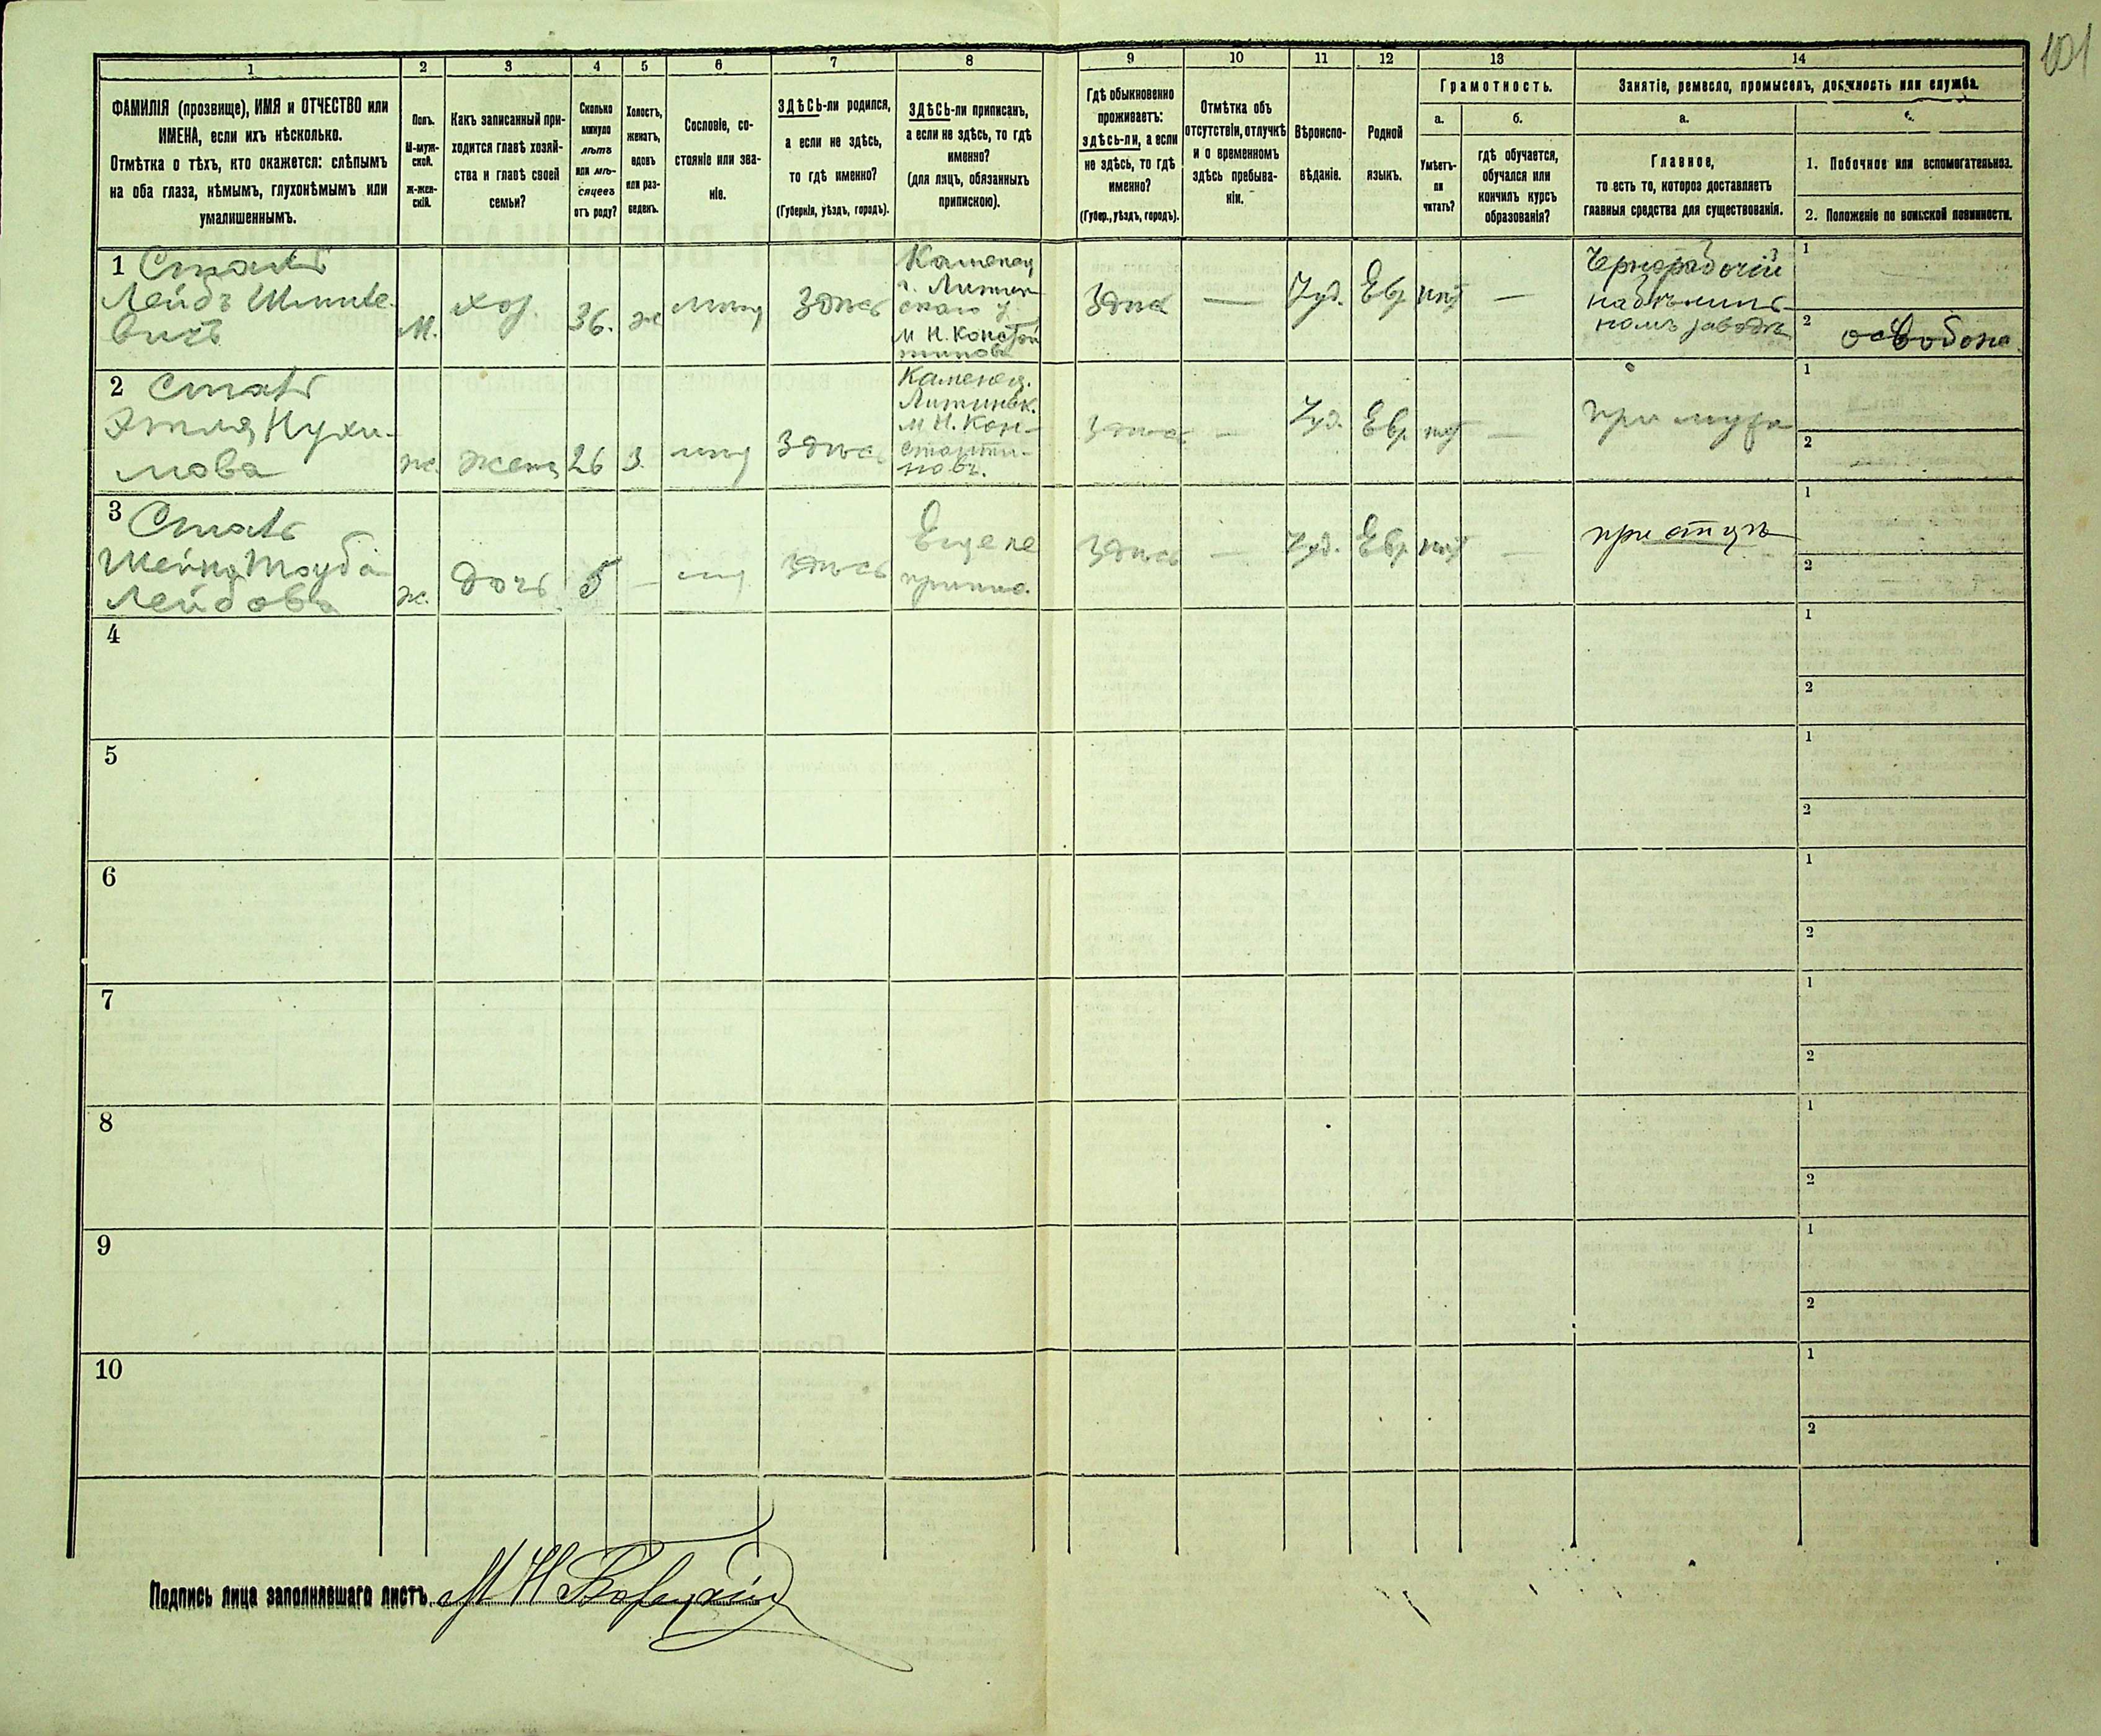 101
1
2
3
4
5
6
7
8
9
10
11
12
13
14
ФАМИЛІЯ (прозвище), ИМЯ и ОТЧЕСТВО или
ИМЕНА, если ихъ нѣсколько.
Отмѣтка о тѣхъ, кто окажется: слѣпымъ
на оба глаза, нѣмымъ, глухонѣмымъ или
умалишеннымъ.
Полъ.
М-муж-
ской.
Ж-жен-
скій.
Какъ записанный при-
ходится главѣ хозяй-
ства и главѣ своей
семьи?
Сколько
минуло
лѣтъ
или мѣ-
сяцевъ
отъ роду?
Холостъ,
женатъ,
вдовъ
или раз-
веденъ.
Сословіе, со-
стояніе или зва-
ніе.
ЗДѢСЬ-ли родился,
а если не здѣсь,
то гдѣ именно?
(Губернія, уѣздъ, городъ).
ЗДѢСЬ-ли приписанъ,
а если не здѣсь, то гдѣ
именно?
(для лицъ, обязанныхъ
припискою).
Гдѣ обыкновенно
проживаетъ:
здѣсь-ли, а если
не здѣсь, то гдѣ
именно?
(Губер., уѣздъ, городъ).
Отмѣтка объ
отсутствіи, отлучкѣ
и о временномъ
здѣсь пребыва-
ніи.
Вѣроиспо-
вѣданіе.
Родной
языкъ.
Грамотность.
а.
Умѣетъ-
ли
читать?
б.
гдѣ обучается,
обучался или
кончилъ курсъ
образованія?
Занятіе, ремесло, промыселъ, должность или служба.
а.
Главное,
то есть то, которое доставляетъ
главныя средства для существованія.
1. Побочное или вспомогательное.
2. Положеніе по воинской повинности.
1
Лейбъ
вичъ
м.
хоз.
36.
ж
здѣсь
Каменец
г. Литин
скаго у
м Н. Констан
тинов
здѣсь
—
Іуд.
Евр
нѣт
—
Чернорабочій
номъ заводѣ
1
2 освобожд.
2
мова
ж.
жена
26
з.
здѣсь
Каменец.
Литинск.
м Н. Кон-
станти-
новъ.
здѣсь
—
Іуд.
Евр
нѣт
—
при мужѣ
1
2
3
Лейбова
ж.
дочь
5
—
здѣсь
Еще не
припис.
здѣсь
—
Іуд.
Евр.
нѣт
—
при отцѣ
1
2
4
1
2
5
1
2
6
1
2
7
1
2
8
1
2
9
1
2
10
1
2
Подпись лица заполнявшаго листъ